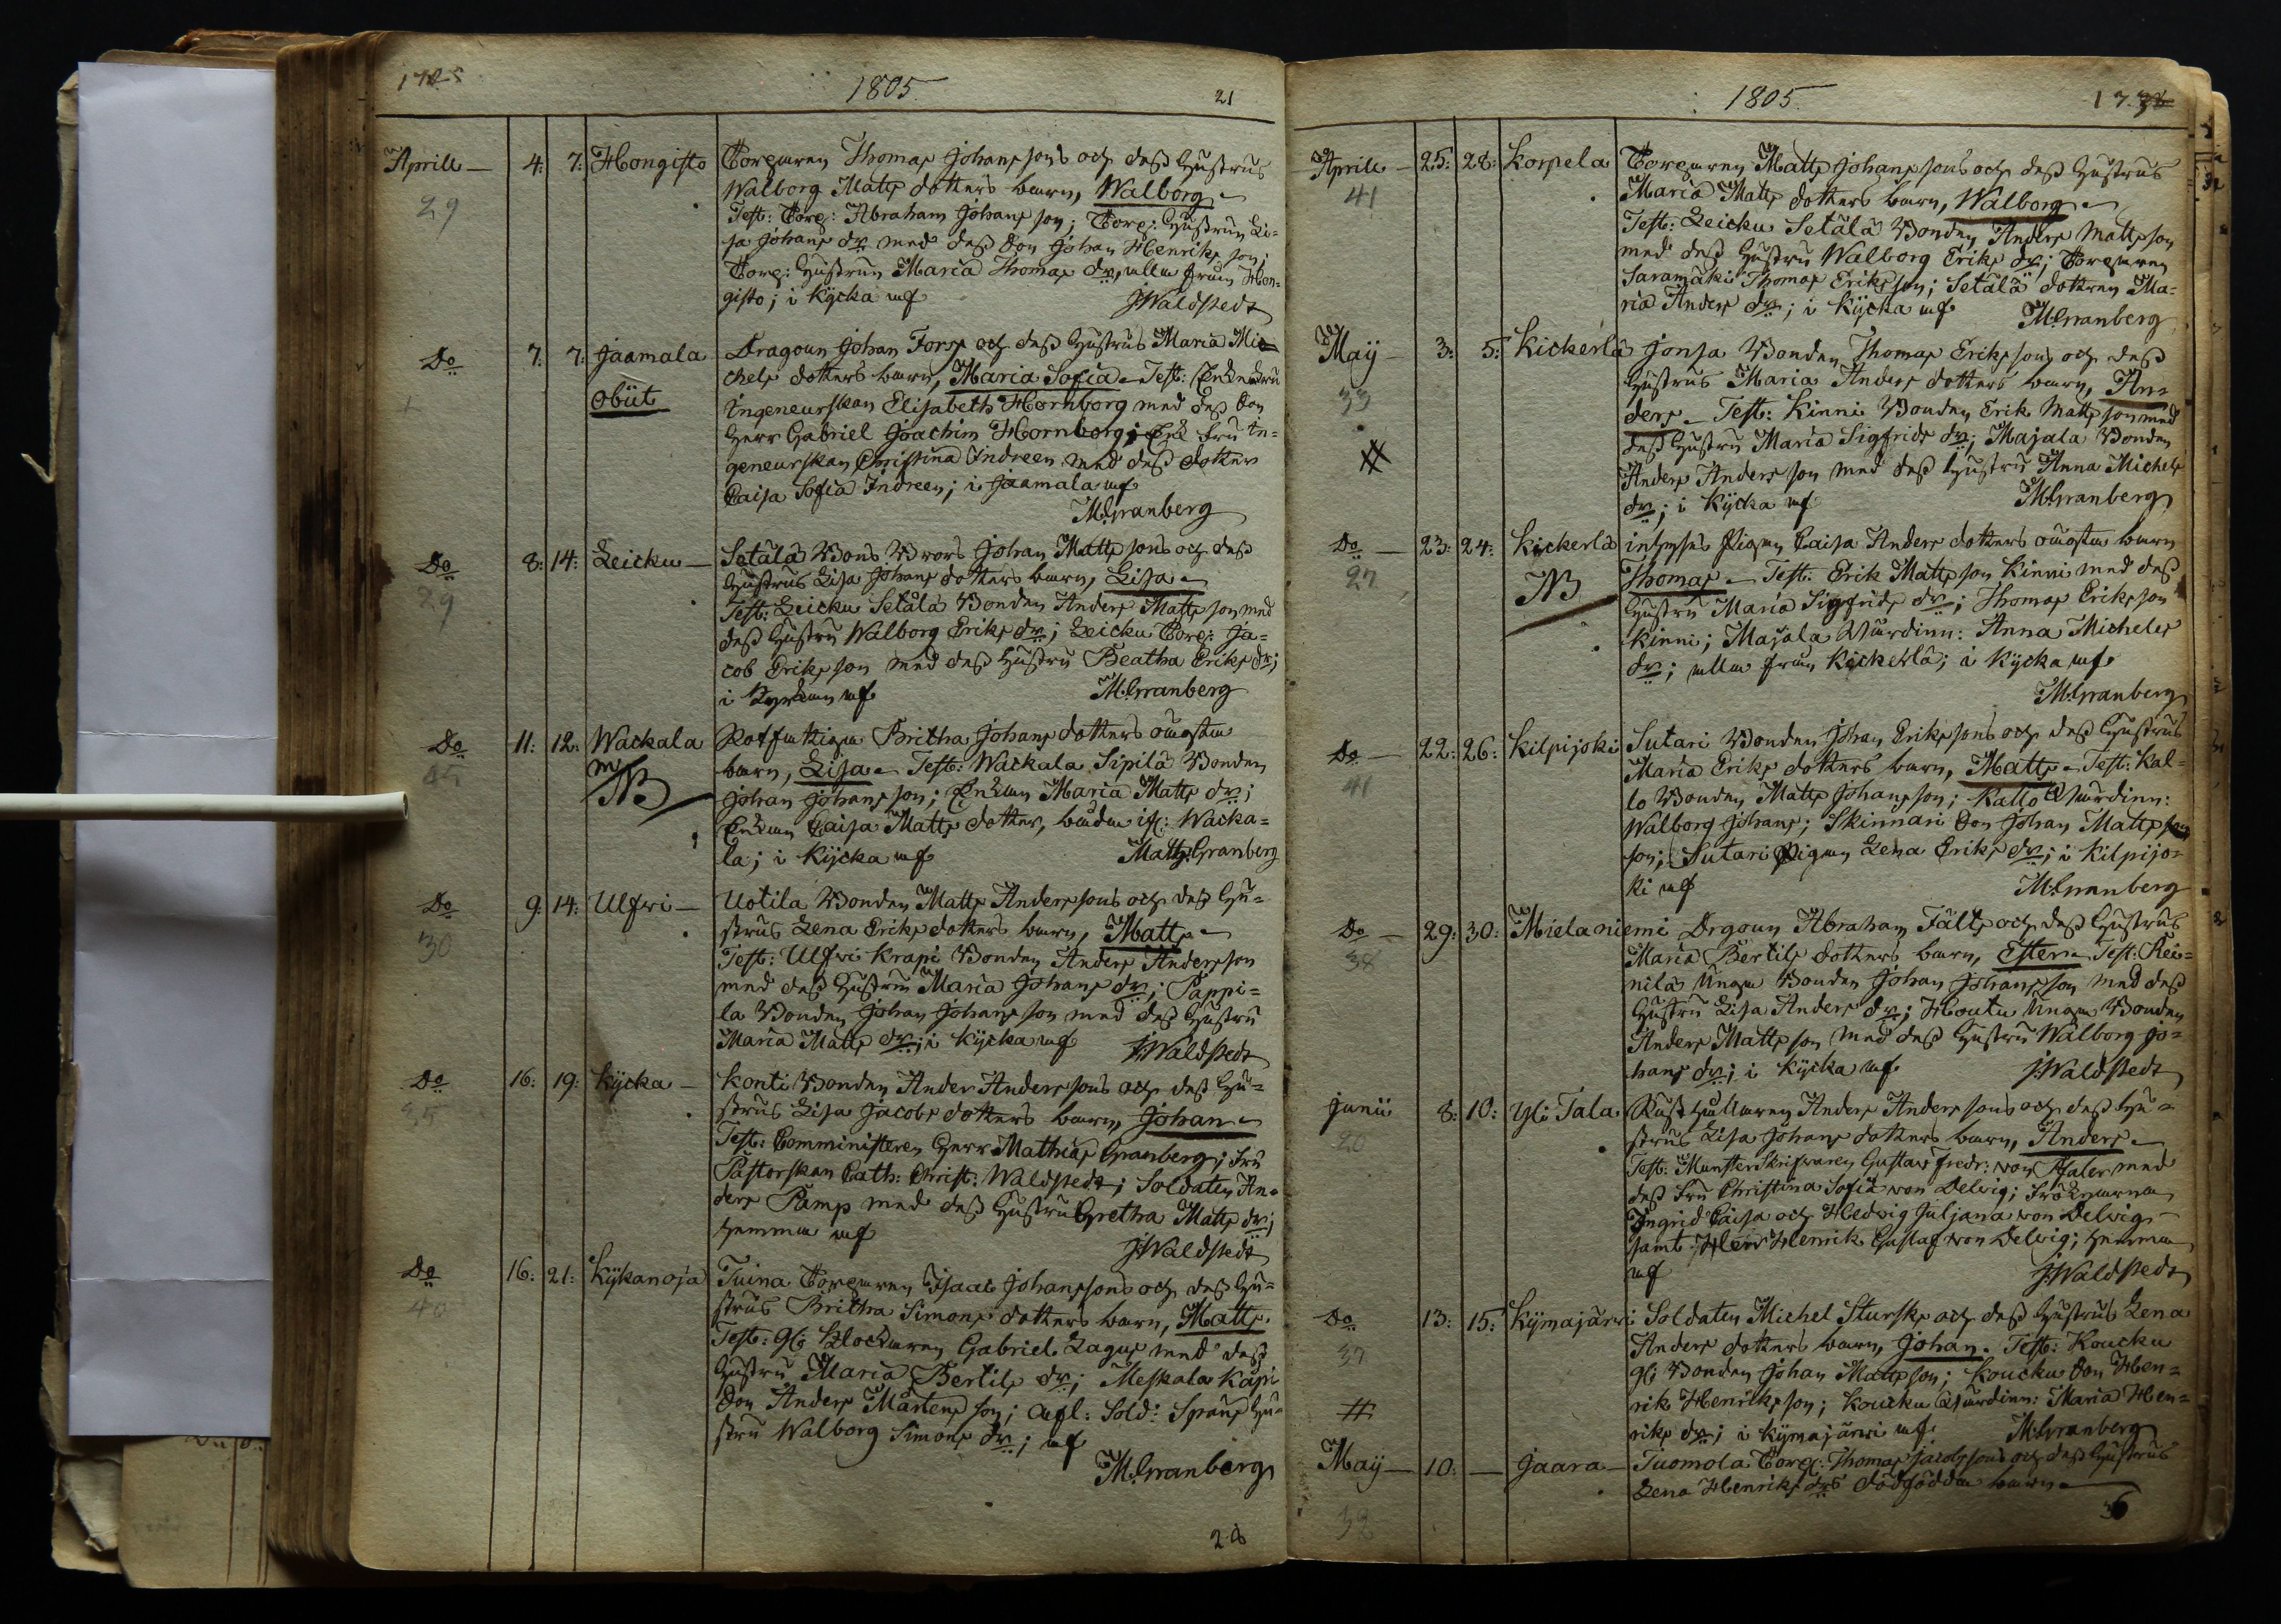 1805.
21
Aprill — 4: 7: Hongisto Torparen Thomas Johanssons och dess Hustrus
29 Walborg Matts dotters barn, Walborg —
Test: Torp: Abraham Johans son; Torp: Hustrun Li-
sa Johans dr med dess Son Johan Henriks son;
Torp: Hustrun Maria Thomas dr, alla från Hon-
gisto; i Kycka af JWaldstedt
Do 7: 7: Jaamala Dragoun Johan Fors och dess Hustrus Maria Mi-
chels dotters barn, Maria Sofia — Test: Enkefru
obiit Ingeneurskan Elisabeth Hornborg med dess Son
Herr Gabriel Joachim Hornborg; Enk Fru In-
geneurskan Christina Indreen med dess dotter
Caisa Sofia Indreen; i Jaamala af
M:Granberg
Do 8: 14: Leicku — Setälä Bonds Brors Johan Matts sons och dess
29 Hustrus Lisa Johans dotters barn, Lisa —
Test: Leicku Setälä Bonden Anders Matts son med
dess Hustru Walborg Eriks dr; Leicku Torp: Ja-
cob Eriks son med dess Hustru Beatha Eriks dr;
i Kyrckan af M:Granberg
Do 11: 12: Wackala Britha Johans dotters oäckta
NB barn, Lisa — Test: Wackala Sipilä Bonden
Johan Johans son; Enkan Maria Matts dr;
Enkan Caisa Matts dotter, Wacka-
la; i Kycka af Matts:Granberg
Do 9: 14: Ulfvi — Uotila Bonden Matts Anders sons och dess Hu-
30 strus Lena Eriks dotters barn, Matts —
Test: Ulfvi Krapi Bonden Anders Anders son
med dess Hustru Maria Johans dr; Pappi-
la Bonden Johan Johans son med dess Hustru
Maria Matts dr; i Kycka af J:Waldstedt
Do 16: 19: Kycka — Konti Bonden Ander Anders sons och dess Hu-
35 strus Lisa Jacobs dotters barn, Johan —
Test: Comministeren Herr Mathias Granberg; Fru
Pastorskan Cath: Christ: Waldstedt; Soldaten An-
ders Pamp med dess Hustru Gretha Matts dr;
hemma af J:Waldstedt
Do 16: 21: Kykänoja Tuina Torparen Isaac Johanssons och dess Hu-
40 strus Britha Simons dotters barn, Matts.
Test: Gl: Klockaren Gabriel Lagus med dess
Hustru Maria Bertils dr; Meskala Käpi
Son Anders Mårtens son; Afl: Sold: Spans Hu-
stru Walborg Simons dr; af
M:Granberg
1805.
Aprill — 25: 28: Korpela Torparen Matts Johans sons och dess Hustrus
41 Maria Matts dotters barn, Walborg —
Test: Leicku Setälä Bonden Anders Matts son
med dess Hustru Walborg Eriks dr; Torparen
Saramäki Thomas Eriks son; Setälä dotren Ma-
ria Anders dr; i Kycka af M:Granberg
Maij — 3: 5: Kickerlä Jonsa Bonden Thomas Eriks sons och dess
33 Hustrus Maria Anders dotters barn, An-
ders — Test: Kinni Bonden Erik Matts son med
dess Hustru Maria Sigfrids dr; Majala Bonden
Anders Anders son med dess Hustru Anna Michels
dr; i Kycka af M:Granberg
Do — 23: 24: Kickerlä inhyses Pigan Caisa Anders dotters oäckta barn
27 NB Thomas — Test: Erik Matts son Kinni med dess
Hustru Maria Sigfrids dr; Thomas Eriks son
Kinni; Majala Wärdinn: Anna Michels
dr; alla från Kickerlä; i Kycka af
M:Granberg
Do — 22: 26: Kilpijoki Sutari Bonden Johan Eriks sons och dess Hustrus
41 Maria Eriks dotters barn, Matts — Test: Kal-
lo Bonden Matts Johans son; Kallo Wärdinn:
Walborg Johans; Skinnari Son Johan Matts
son; Sutari Pigan Lena Eriks dr; i Kilpijo-
ki af M:Granberg
Do — 29: 30: Mielaniemi Drgoun Abraham Fält och dess Hustrus
38 Maria Bertils dotters barn, Ester — Test: Rei-
nilä Unga Bonden Johan Johans son med dess
Hustru Lisa Anders dr; Houtu Unga Bonden
Anders Matts son med dess Hustru Walborg Jo-
hans dr; i Kycka af J:Waldstedt
Junii 8: 10: Yli Tala Rusthållaren Anders Anders sons och dess Hu-
20 strus Lisa Johans dotters barn, Anders —
Test: MunsterSkrifvaren Gustav Fredr: von Pfaler med
dess Fru Christina Sofia von Delvig; Fröknarna
Ingrid Caisa och Hedvig Juljana von Delvig —
samt Herr Henrik Gustaf von Delvig; hemma
af J:Waldstedt
Do 13: 15: Kymäjärvi Soldaten Michel Sturks och dess Hustrus Lena
37 Anders dotters barn, Johan. Test: Koucku
Gl: Bonden Johan Matts son; Koucku Son Hen-
rik Henriks son; Koucku Wärdinn: Maria Hen-
riks dr; i Kymäjärvi af M:Granberg
Maij — 10: — Jaara — Tuomola Torp: Thomas Jacobs sons och dess Hustrus
38 Lena Henriks drs dödfödda barn —